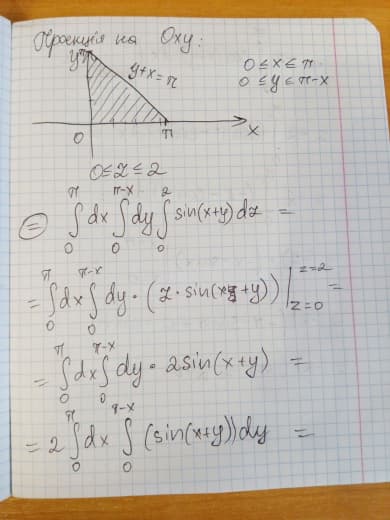 Проекція на Oxy:
y π y+x=π 0 ≤ x ≤ π
0 ≤ y ≤ π-x
0 π x
0 ≤ z ≤ 2
= ∫₀^π dx ∫₀^(π-x) dy ∫₀^2 sin(x+y) dz =
= ∫₀^π dx ∫₀^(π-x) dy · (z · sin(x+y)) |_(z=0)^(z=2) =
= ∫₀^π dx ∫₀^(π-x) dy · 2sin(x+y) =
= 2 ∫₀^π dx ∫₀^(π-x) (sin(x+y)) dy =